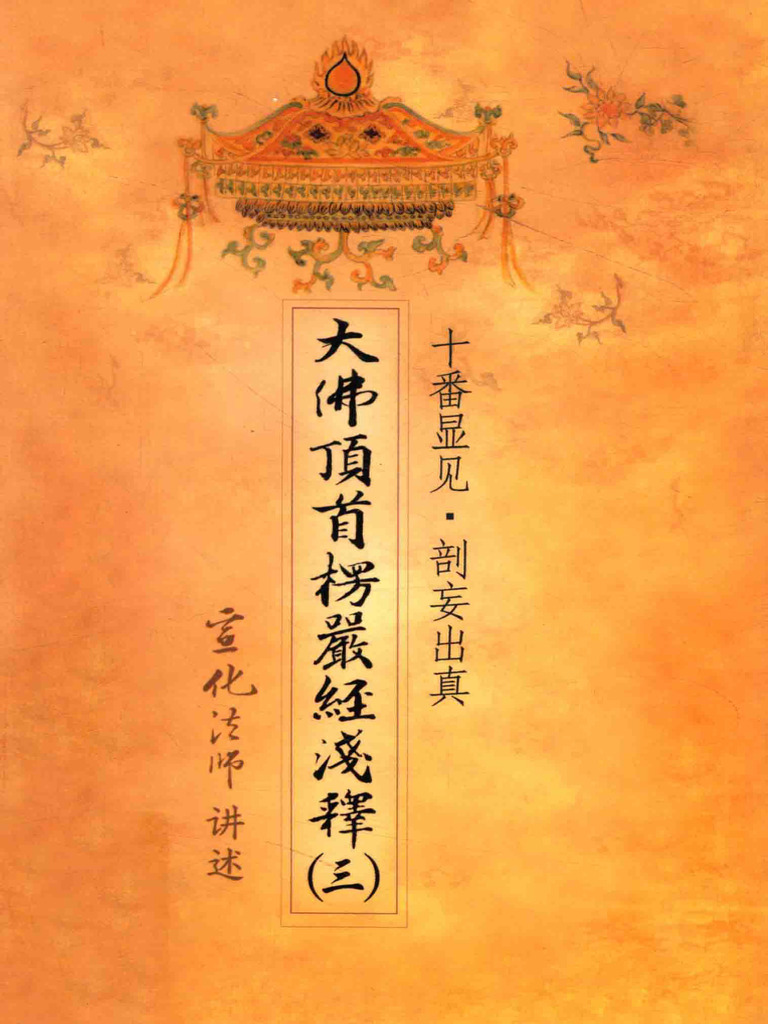 十番显见·剖妄出真
大佛頂首楞嚴經淺釋(三)
宣化法师 讲述